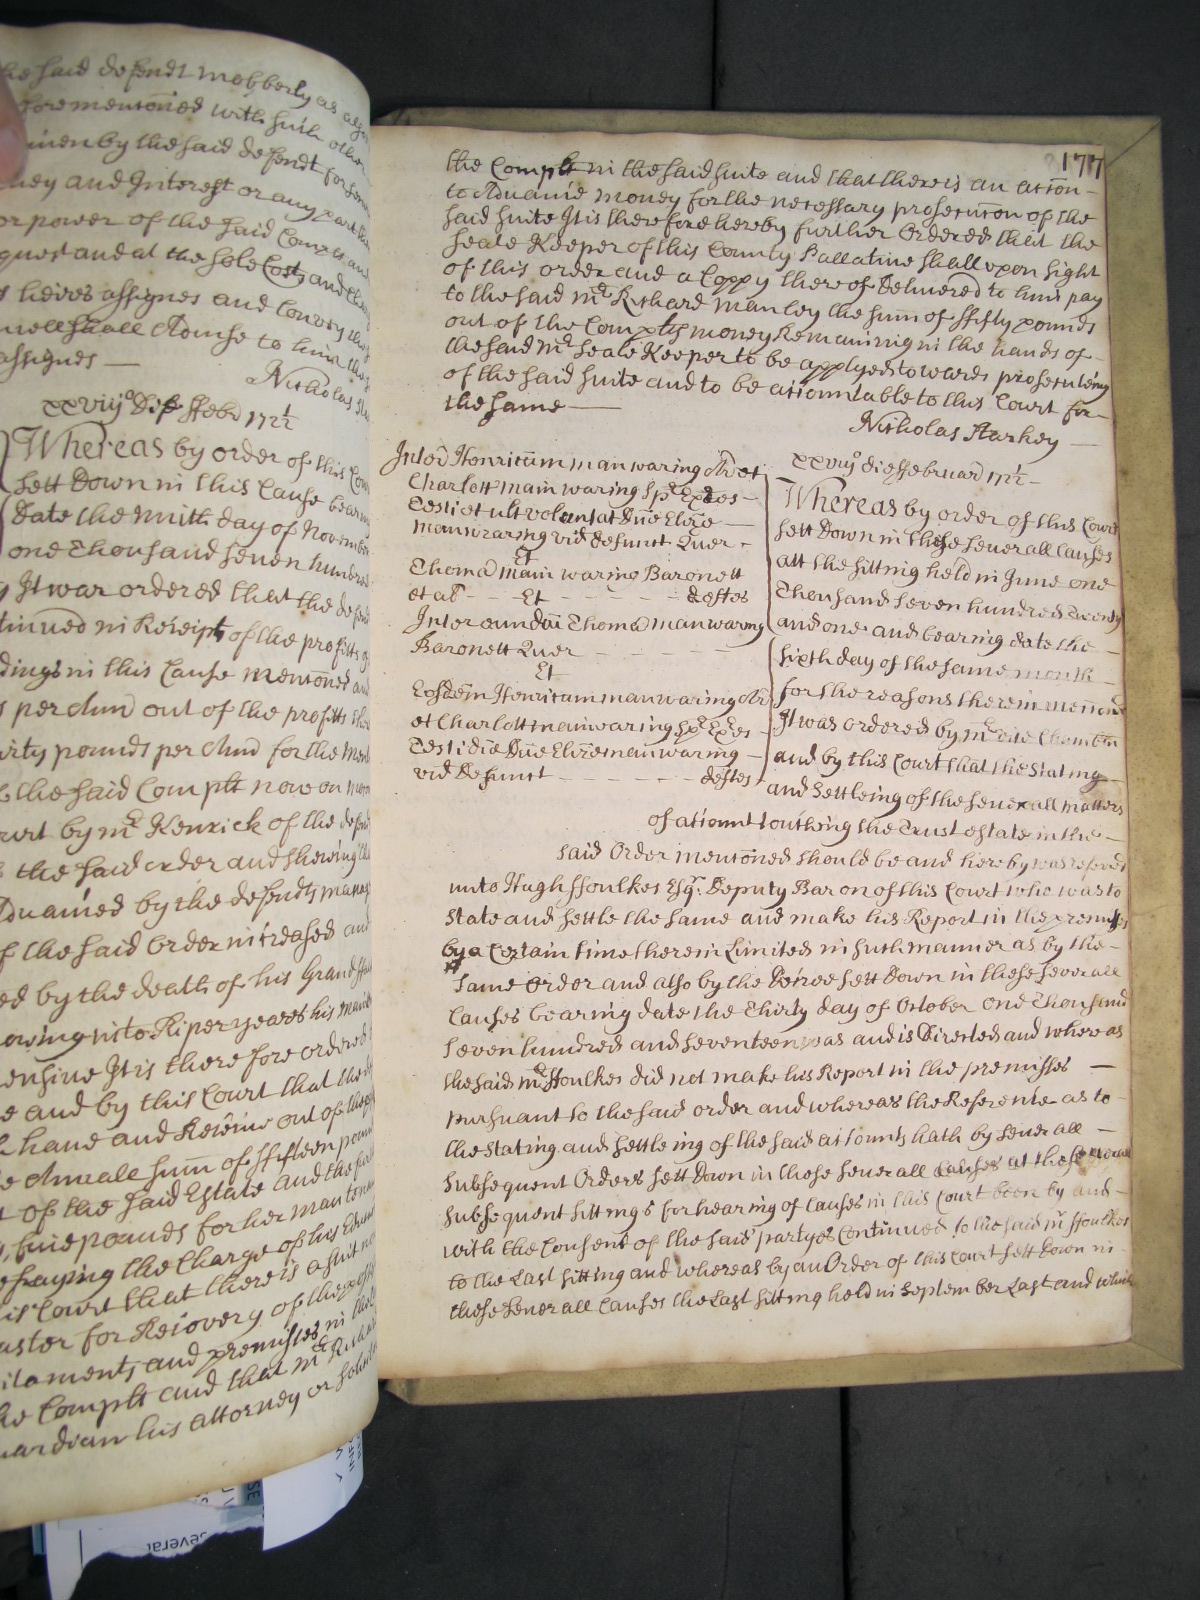 he said defendt mobberly as
forementoned with such other
given by the said defendt for
ney and Interest or any part
or power of the said Complts and
quest and at the sole Costs and
s heires assignes and Convey the
nell shall Advise to him the
assignes —
Nicholas
xxviijo Die ffebr 172½
Whereas by order of this
sett Down in this Cause bearing
Date the Ninth day of November
one Thousand seven hundred
It was ordered that the
tinued in Receipt of the profitts
dings in this Cause mentoned and
s per Annu out of the profitts
irty pounds per Annu for the
the said Complt now on
urt by mr Kenrick of the
the said order and shewing
Advanced by the defendts
f the said order increased and
ed by the death of his Grand
owing into Riper years his
ensive It is therefore ordered
e and by this Court that the
have and Receive out of the
e Annuall sum of ffifteen
t of the said Estate and the
five pounds for her
efraying the Charge of his
is Court that there is a suit
aster for Recovery of the
itaments and premisses in
he Complt and that mr
uardian his Attorney or
177
the Complt in the said suite and that there is an accon
to Advance money for the necessary prosecucon of the
said suite It is therefore hereby further Ordered that the
Seale Keeper of this County Pallatine shall upon sight
of this order and a Coppy thereof Delivered to him pay
to the said mr Richard Manley the sum of ffifty pounds
out of the Complts money Remaining in the hands of
the said mr Seale Keeper to be applyed towards prosecuteing
of the said suite and to be accountable to this Court for
the same —
Nicholas Starkey —
Inter Henricum manwaring Ar et
Charlott mainwaring Spr Exrs
Testi et ult volentat Dne Elize
Mainwaring vid defunct Quer
Et
Thoma mainwaring Baronett
et al - - Et - - deftes
Inter eundm Thoma manwaring
Baronett Quer
Et
Eosdem Henricum manwaring Ar
et Charlott mainwaring Spr Exrs
Testi die Dne Elize manwaring
vid Defunct - - - deftes
xxviijo die ffebruar 172½
Whereas by order of this Court
sett Down in these severall Causes
att the sitting held in June one
Thousand seven hundred Twenty
and one and bearing date the
sixth day of the same month
for the reasons therein mencond
It was ordered by mr vice Chambn
and by this Court that the stating
and settleing of the severall matters
of accounts touching the Trust estate in the
said Order mentoned should be and hereby was referred
unto Hugh ffoulkes Esqr. Deputy Baron of this Court who was to
state and settle the same and make his Report in the premisses
by a Certain time therein Limited in such manner as by the
same order and also by the Decree sett Down in these severall
Causes bearing date the Thirty day of October one Thousand
seven hundred and seventeen was and is Directed and whereas
the said mr ffoulkes did not make his Report in the premisses —
pursuant to the said order and whereas the Reference as to
the stating and settleing of the said accounts hath by severall —
subsequent Orders sett Down in these severall Causes at the severall
subsequent sittings for hearing of Causes in this Court been by and
with the Consent of the said partyes Continued to the said mr ffoulkes
to the Last sitting and whereas by an Order of this Court sett Down in
these severall Causes the Last sitting held in September Last and which
several